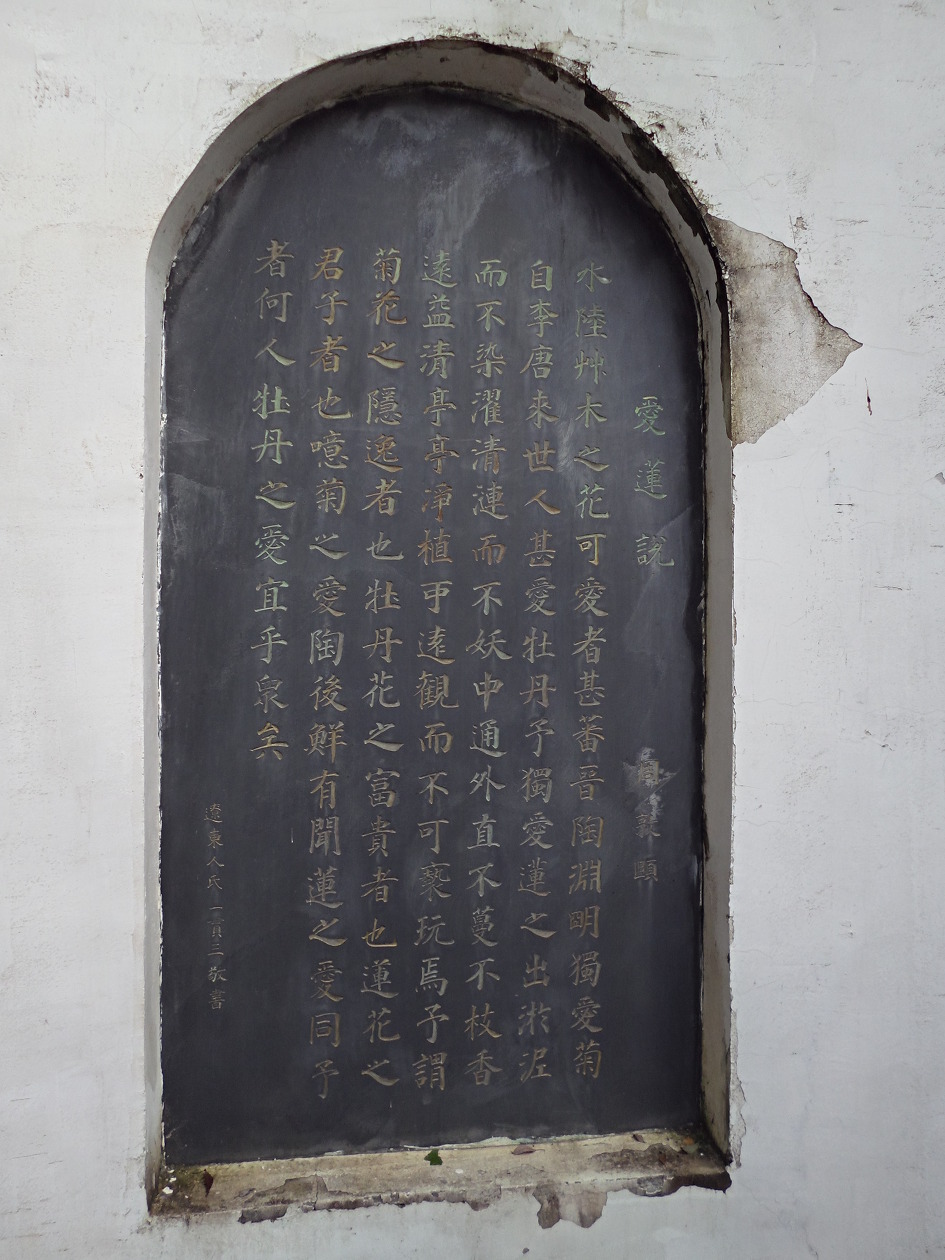 愛蓮說
周敦頤
水陸艸木之花可愛者甚蕃晉陶淵明獨愛菊
自李唐來世人甚愛牡丹予獨愛蓮之出淤泥
而不染濯清漣而不妖中通外直不蔓不枝香
遠益清亭亭淨植可遠觀而不可褻玩焉予謂
菊花之隱逸者也牡丹花之富貴者也蓮花之
君子者也噫菊之愛陶後鮮有聞蓮之愛同予
者何人牡丹之愛宜乎眾矣
遼東人氏一貢三敬書